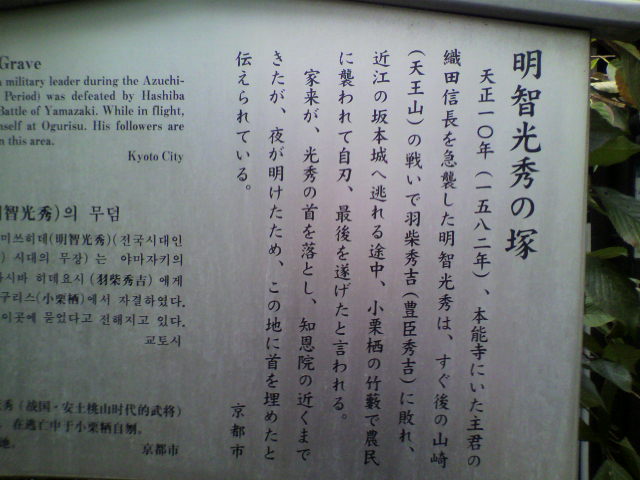 明智光秀の塚
天正一〇年（一五八二年）、本能寺にいた主君の
織田信長を急襲した明智光秀は、すぐ後の山崎
（天王山）の戦いで羽柴秀吉（豊臣秀吉）に敗れ、
近江の坂本城へ逃れる途中、小栗栖の竹藪で農民
に襲われて自刃、最後を遂げたと言われる。
家来が、光秀の首を落とし、知恩院の近くまで
きたが、夜が明けたため、この地に首を埋めたと
伝えられている。
京都市
Grave
military leader during the Azuchi-
Period) was defeated by Hashiba
Battle of Yamazaki. While in flight,
self at Ogurisu. His followers are
this area.
Kyoto City
明智光秀)의 무덤
미쓰히데(明智光秀)(전국시대인
) 시대의 무장) 는 야마자키의
시바 히데요시 (羽柴秀吉) 에게
구리스(小栗栖)에서 자결하였다.
이곳에 묻었다고 전해지고 있다.
교토시
秀（战国・安土桃山时代的武将）
．在逃亡中于小栗栖自刎。
地。
京都市